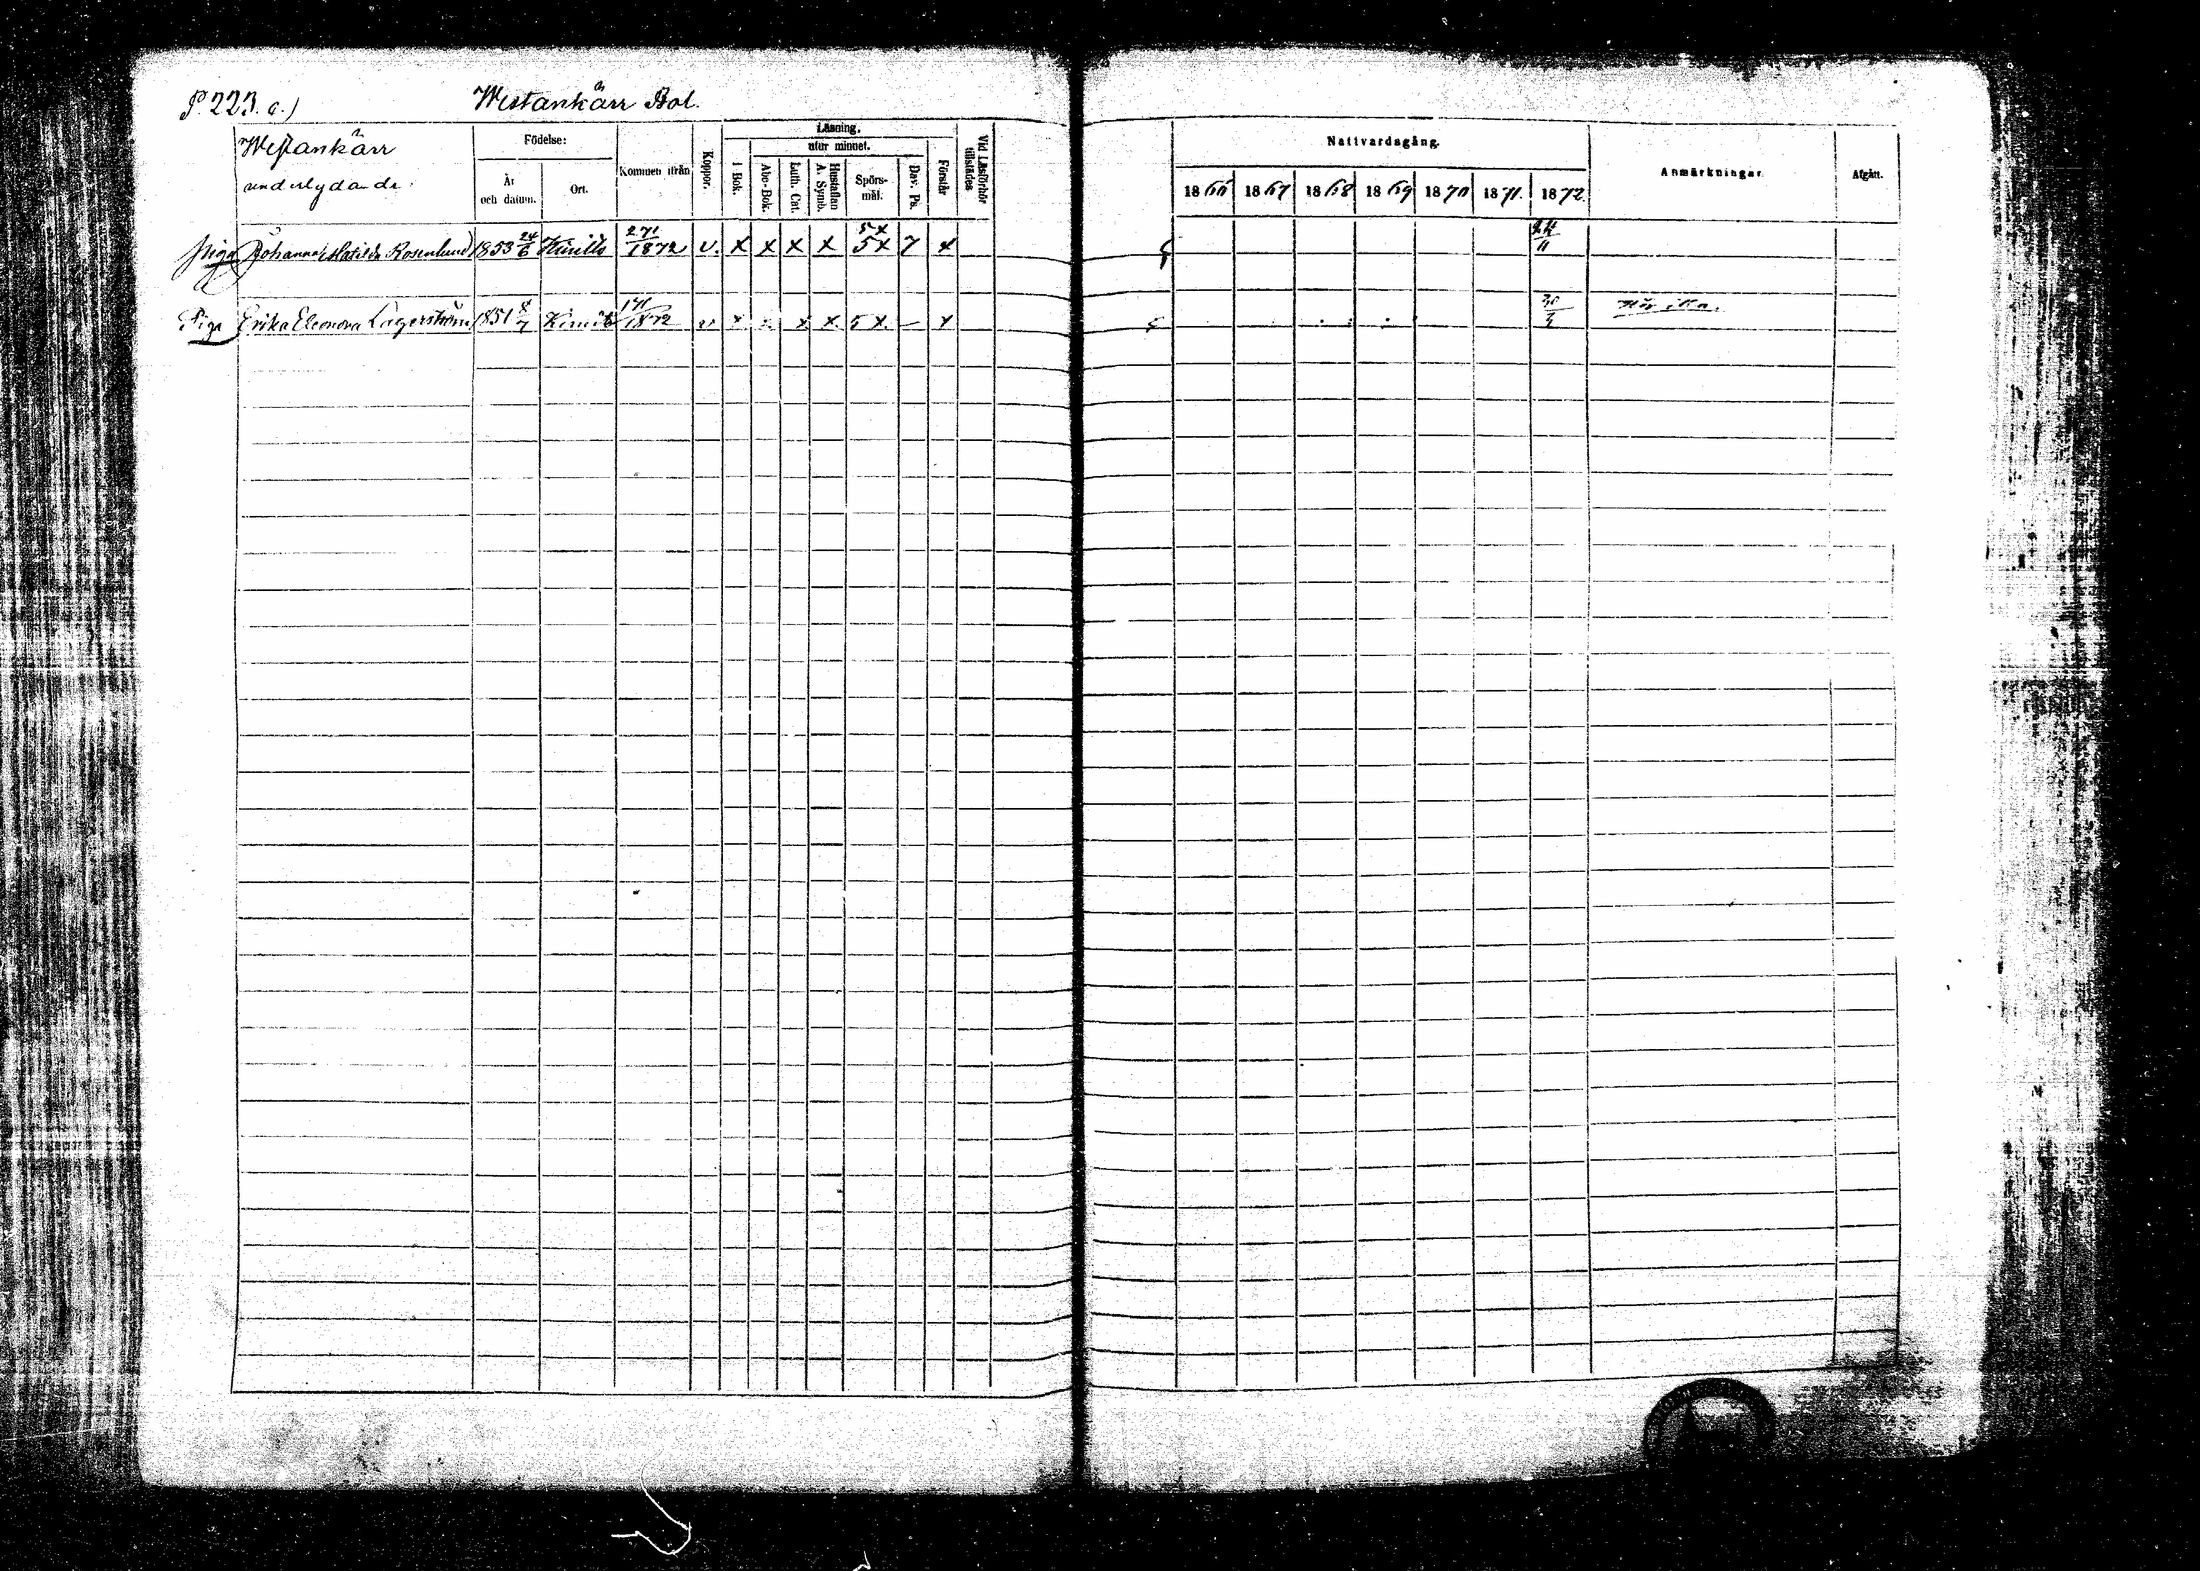 P. 223. a.)
Westankärr Bol.
Westankärr
underlydande.
Födelse:
År
och datum.
Ort.
Kommen ifrån
Koppor.
Läsning.
utur minnet.
I Bok.
Abc-Bok.
Luth. Cat.
Hustaflan
A. Symb.
Spörs-
mål.
Dav. Ps.
Förstår
Vid Läsförhör
tillstädes
Nattvardsgång.
1866 1867 1868 1869 1870 1871. 1872.
Anmärkningar.
Afgått.
piga Johanna Matilda Rosenlund 1853 24/6 Kimito 271/1872 v. x x x x 5x 5x 7 x 24/11
Piga Erika Eleonora Lagerström 1851 8/7 Kimito 171/1872 v x x x x 5 x. – x Hör illa.